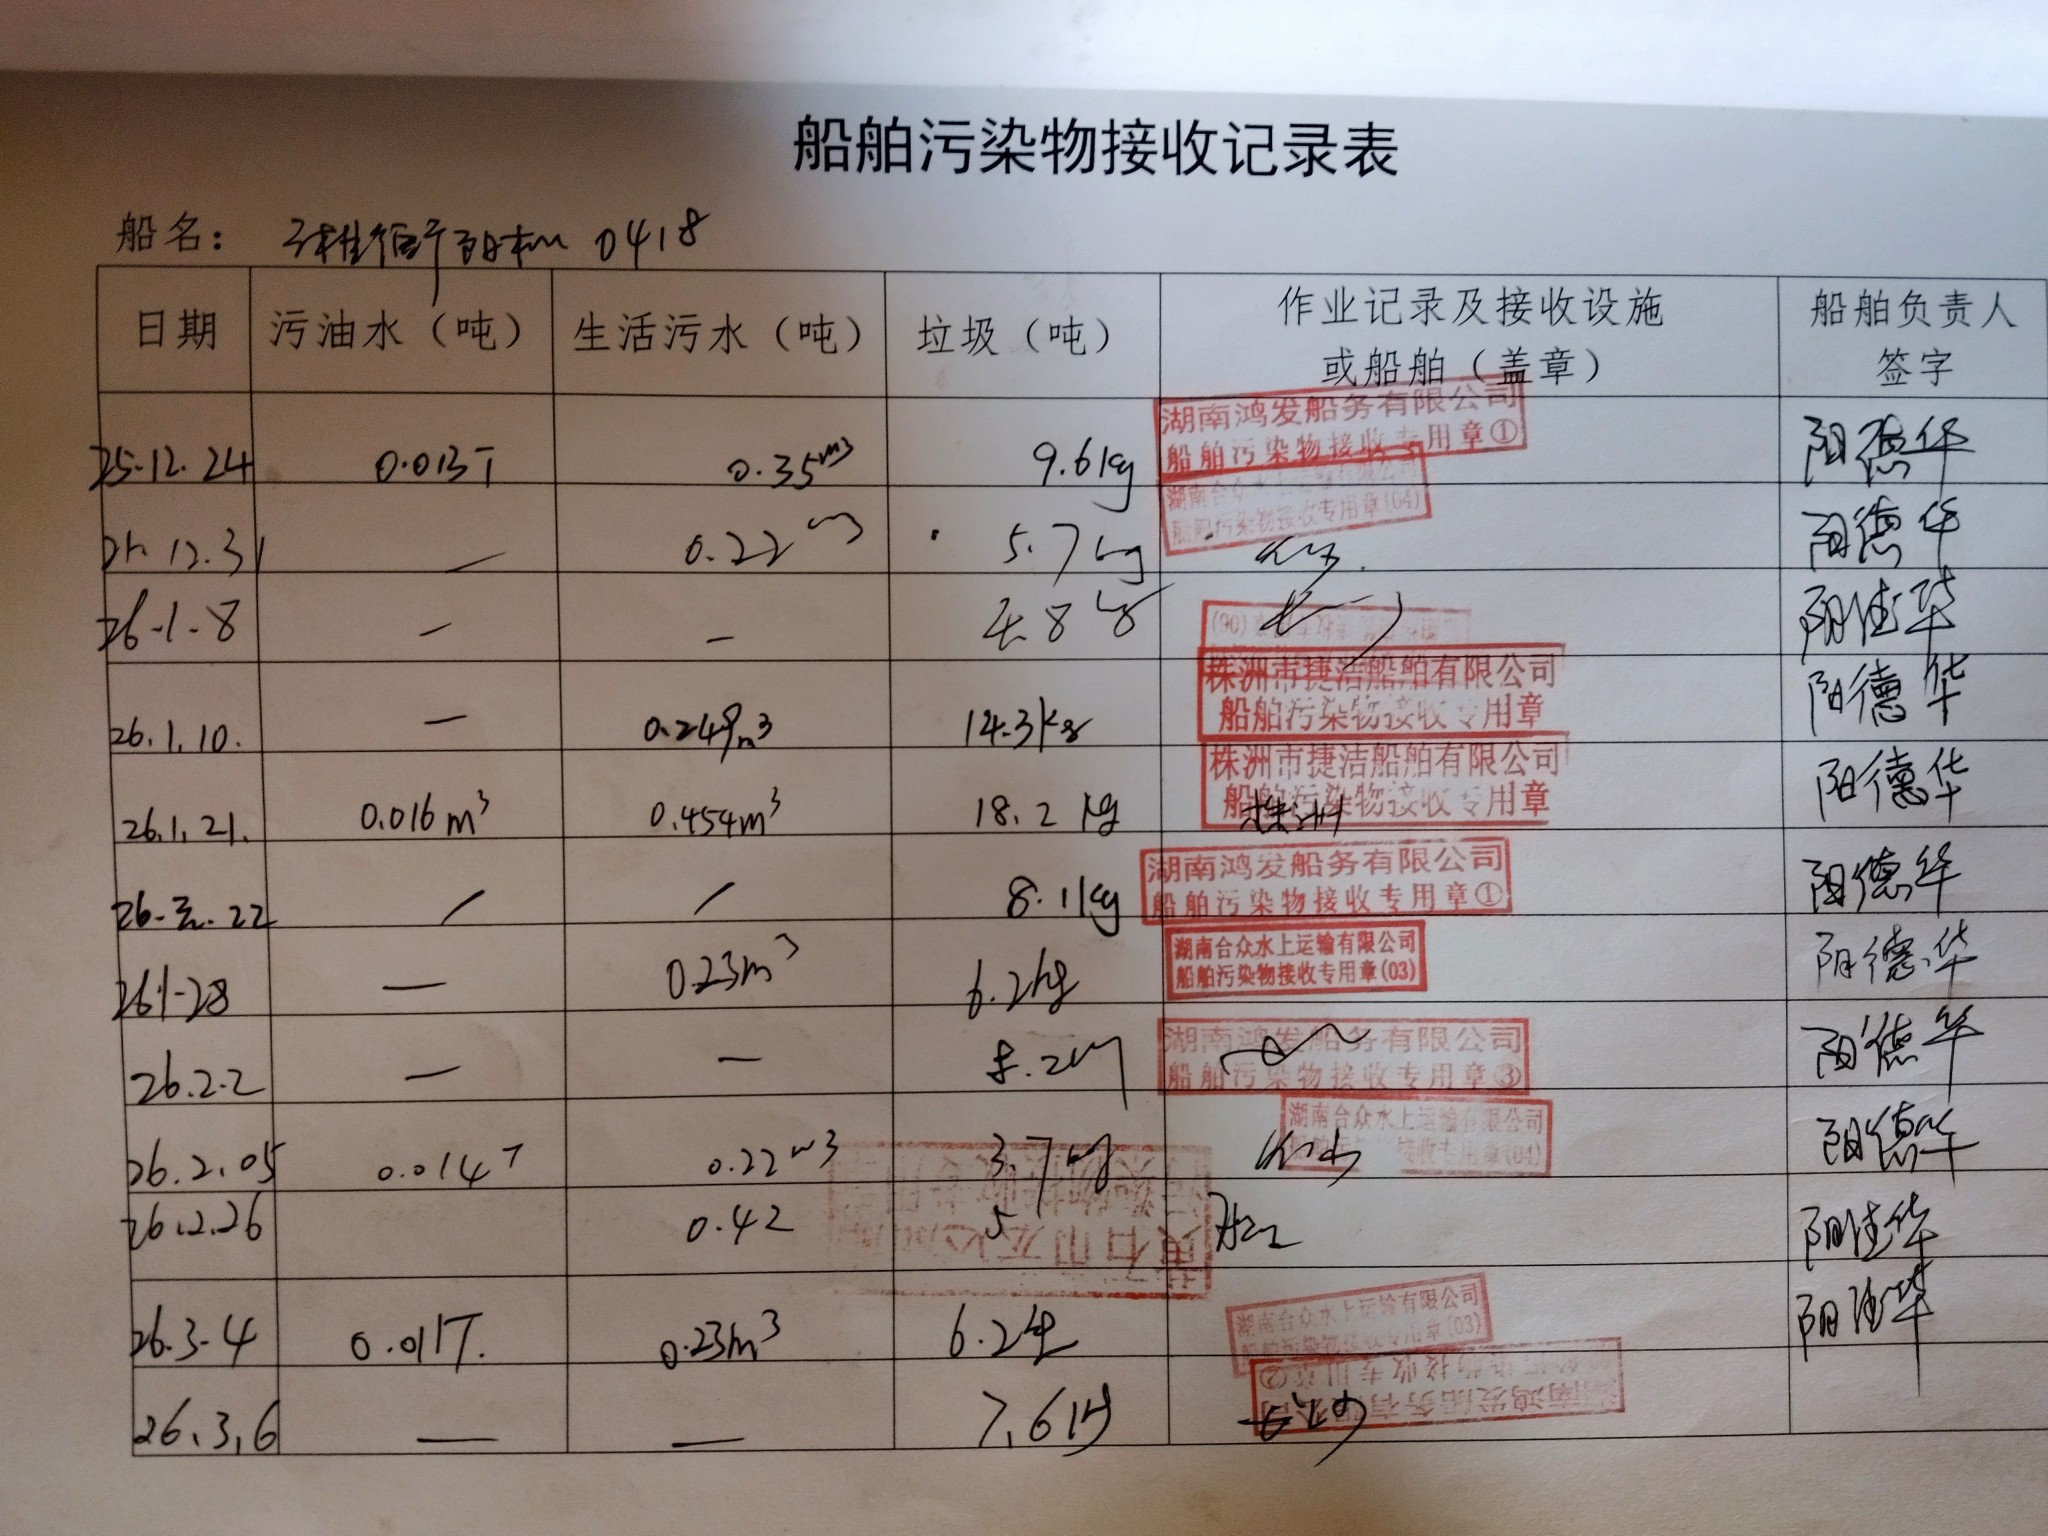 船舶污染物接收记录表
船名： 0418
日期 污油水（吨） 生活污水（吨） 垃圾（吨） 作业记录及接收设施或船舶（盖章） 船舶负责人签字
25.12.24 0.013T 0.35m3 9.6kg 湖南鸿发船务有限公司 船舶污染物接收专用章① 阳德华
湖南台众水上运输有限公司 船舶污染物接收专用章(04)
12.31 — 0.22m3 5.7kg 阳德华
26-1-8 — — 4.8kg 阳德华
26.1.10. — 0.249m3 14.3kg 株洲市捷洁船舶有限公司 船舶污染物接收专用章 阳德华
26.1.21. 0.016m3 0.454m3 18.2kg 株洲市捷洁船舶有限公司 船舶污染物接收专用章 株洲 阳德华
26.元.22 / / 8.1kg 湖南鸿发船务有限公司 船舶污染物接收专用章① 阳德华
26.1-28 — 0.23m3 6.2kg 湖南台众水上运输有限公司 船舶污染物接收专用章(03) 阳德华
26.2.2 — — .2kg 湖南鸿发船务有限公司 船舶污染物接收专用章③ 阳德华
26.2.05 0.014T 0.22m3 3.7kg 湖南台众水上运输有限公司 船舶污染物接收专用章(04) 阳德华
26.2.26 0.42 5 阳德华
26.3-4 0.011T. 0.23m3 6.2kg 湖南台众水上运输有限公司 船舶污染物接收专用章(03) 阳德华
26.3.6 — — 7.6kg 湖南鸿发船务有限公司 船舶污染物接收专用章②